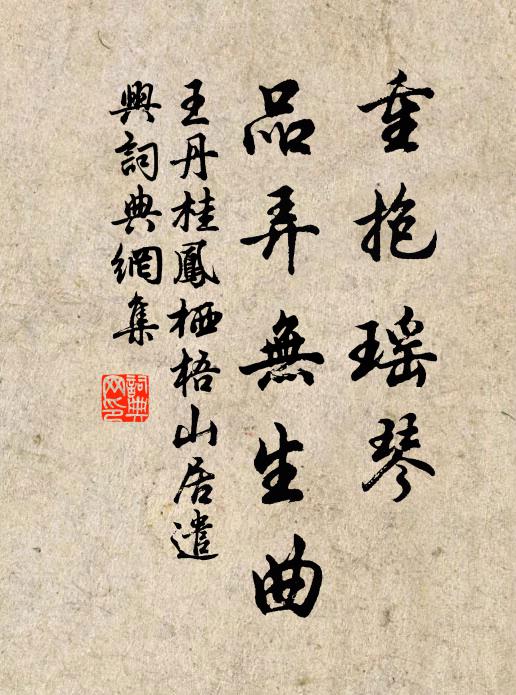 重抱瑤琴
品弄無生曲
王丹桂鳳栖梧山居遣
興詞典網集
詞典
网印